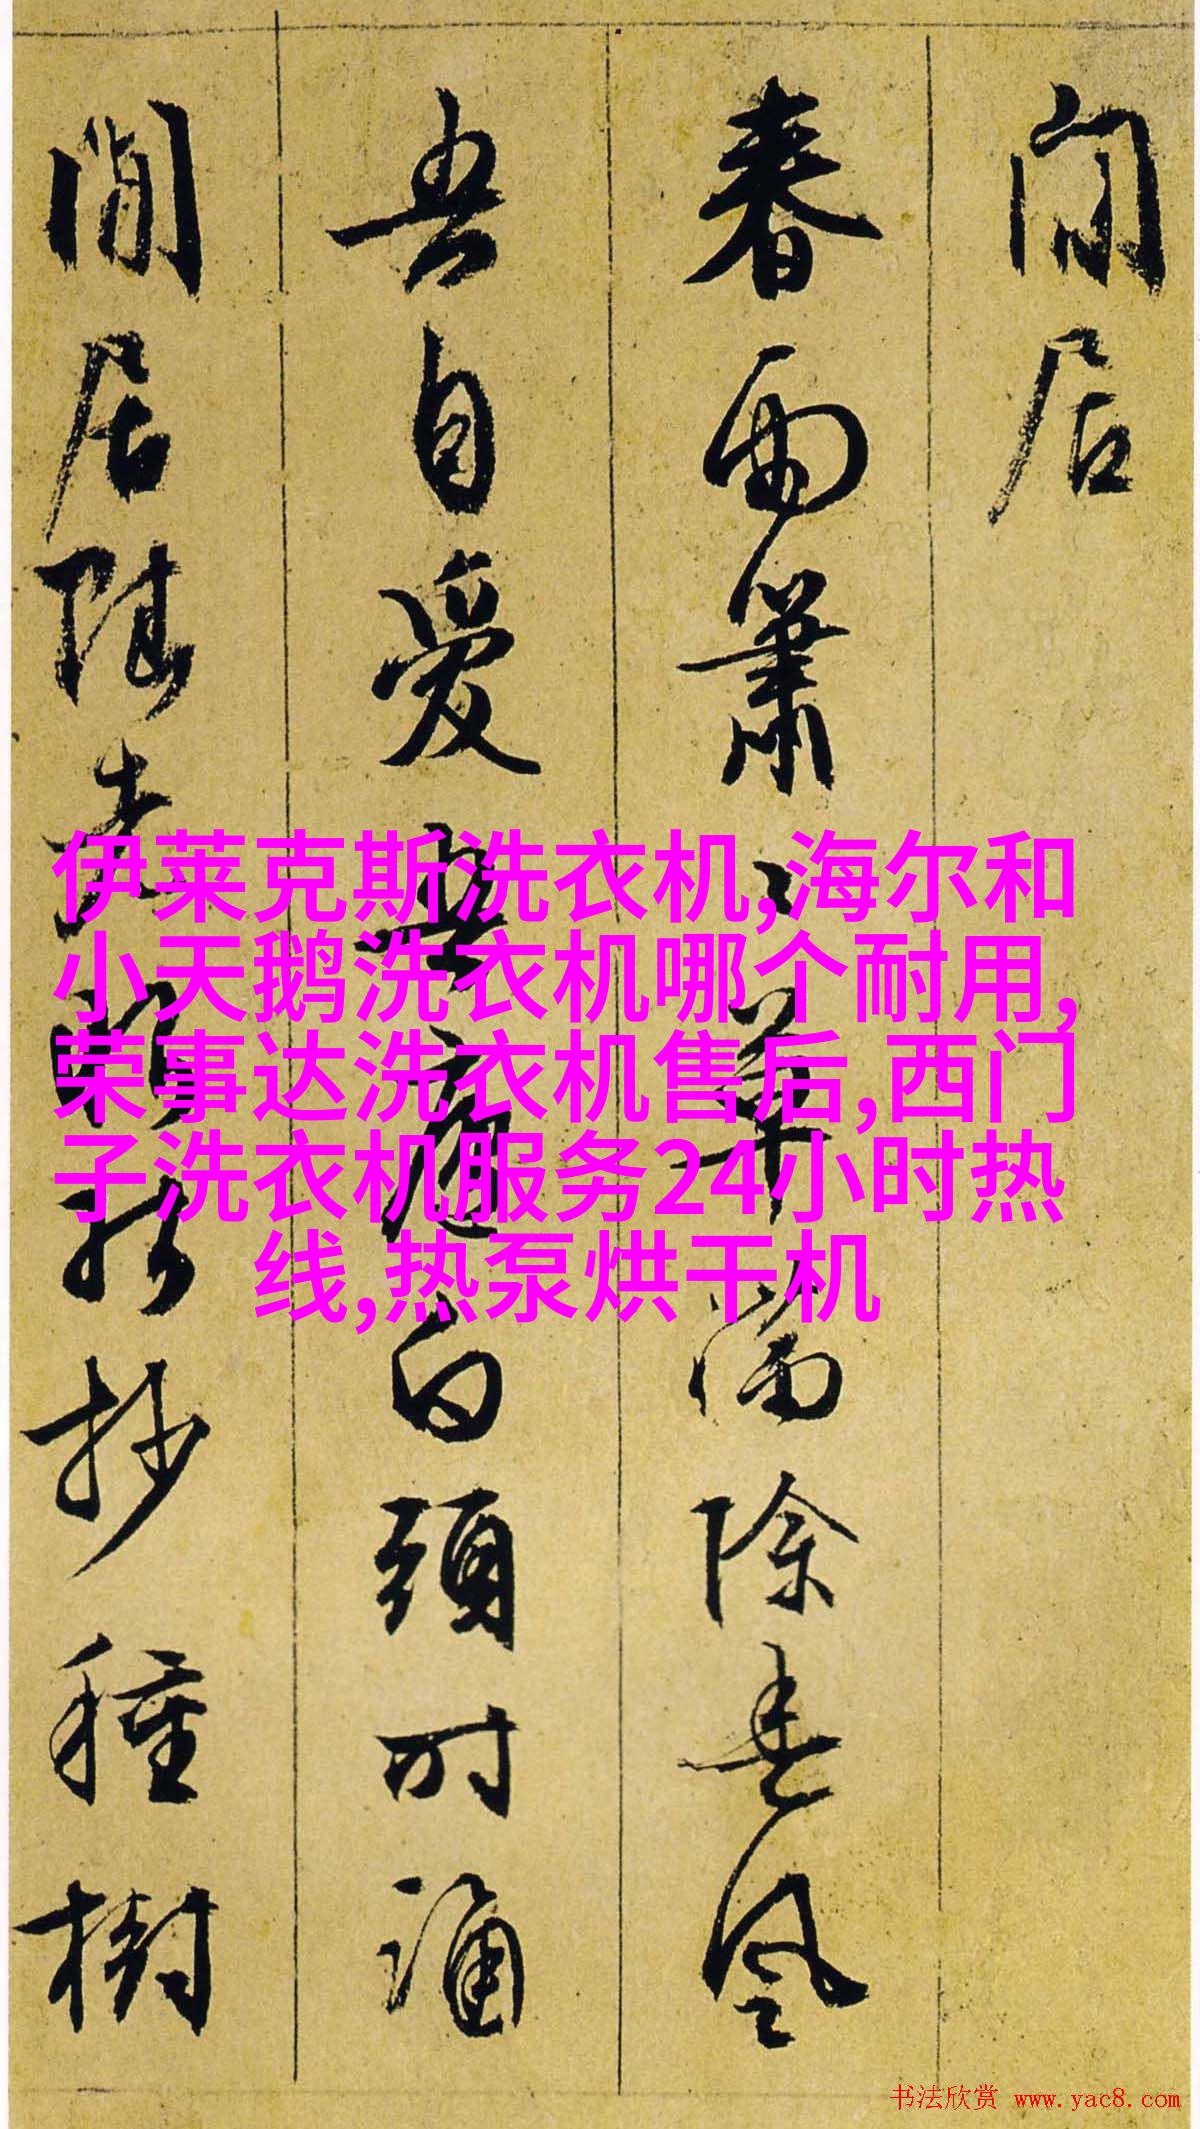 闲居
春雨萧〻草满除春风
吾自爱吾庐白头时诵
閒居
抄种树
伊莱克斯洗衣机,海尔和
小天鹅洗衣机哪个耐用,
荣事达洗衣机售后,西门
子洗衣机服务24小时热
线,热泵烘干机
书法欣赏 www.yac8.com